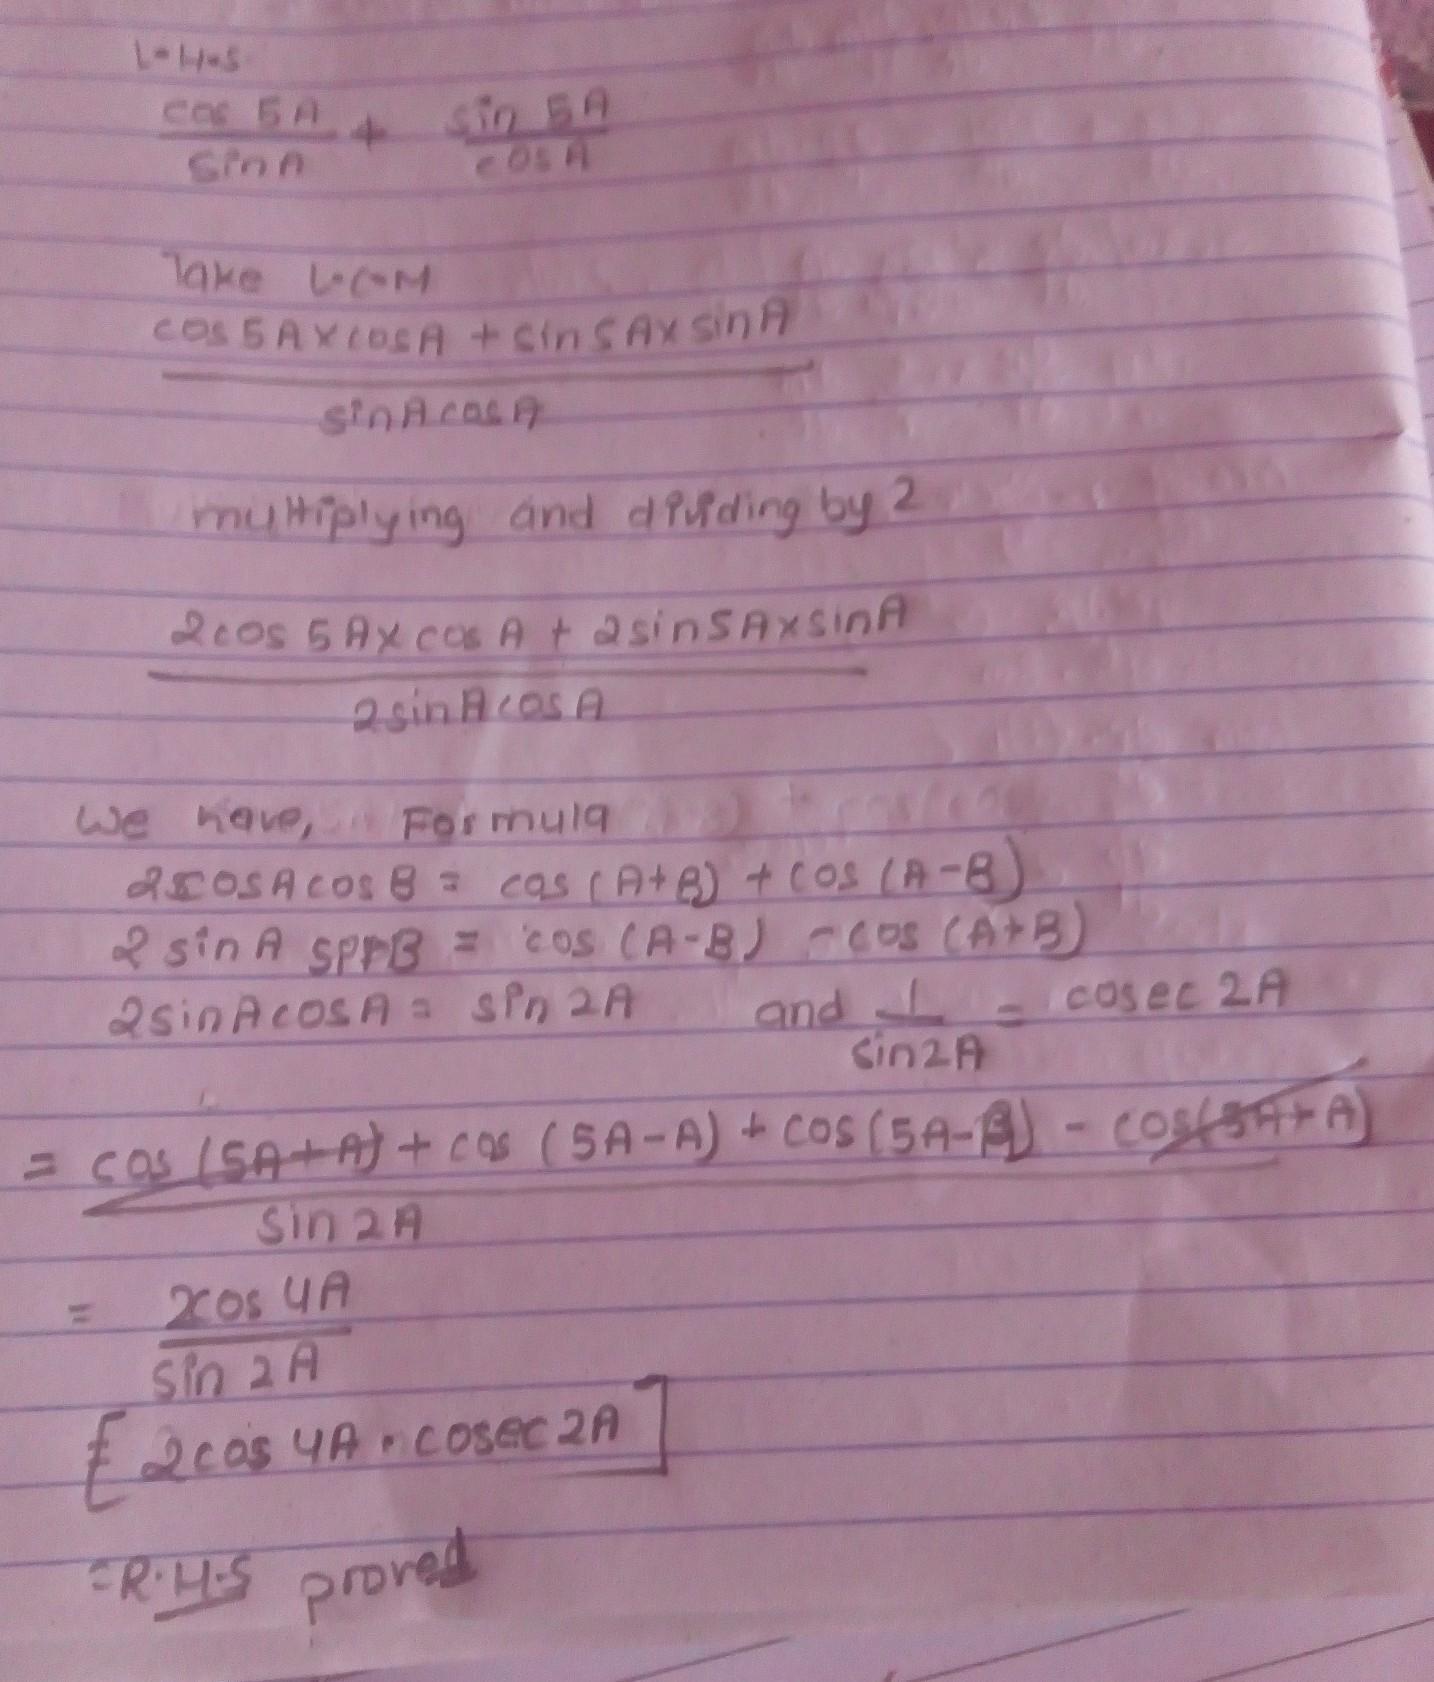 L.H.S
cos 5A / sinA + sin 5A / cosA
Take L.C.M
cos5A×cosA + sin5A×sinA
sinAcosA
multiplying and dividing by 2
2cos5A×cosA + 2sin5A×sinA
2sinAcosA
We have, Formula
2cosAcosB = cos(A+B) + cos(A-B)
2 sinA sinB = cos(A-B) - cos(A+B)
2sinAcosA = sin 2A and 1/sin2A = cosec 2A
= cos(5A+A) + cos(5A-A) + cos(5A-A) - cos(5A+A)
sin2A
= 2cos4A
sin 2A
[= 2cos4A.cosec2A]
=R.H.S proved